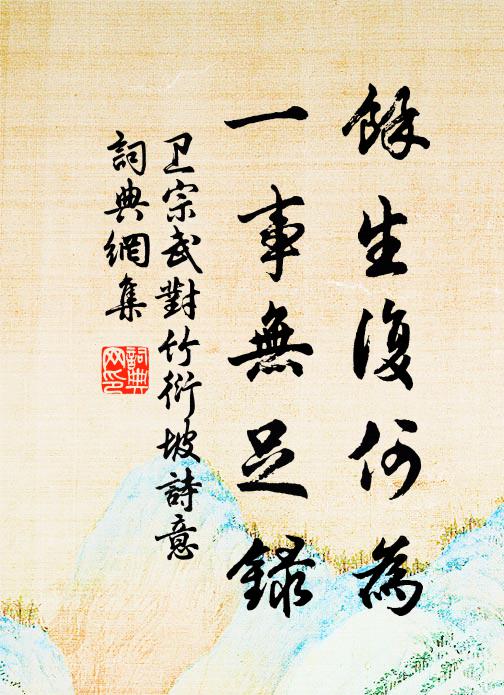 餘生復何為
一事無足錄
卫宗武對竹衍坡詩意
詞典網集
詞典網印